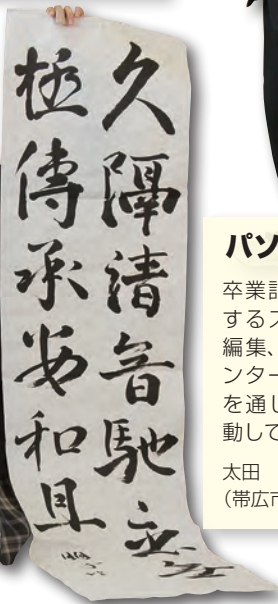 久隔清音馳恋無
極傳承安和且
パソ
卒業
するス
編集、
ンター
を通し
動して
太田
（帯広市